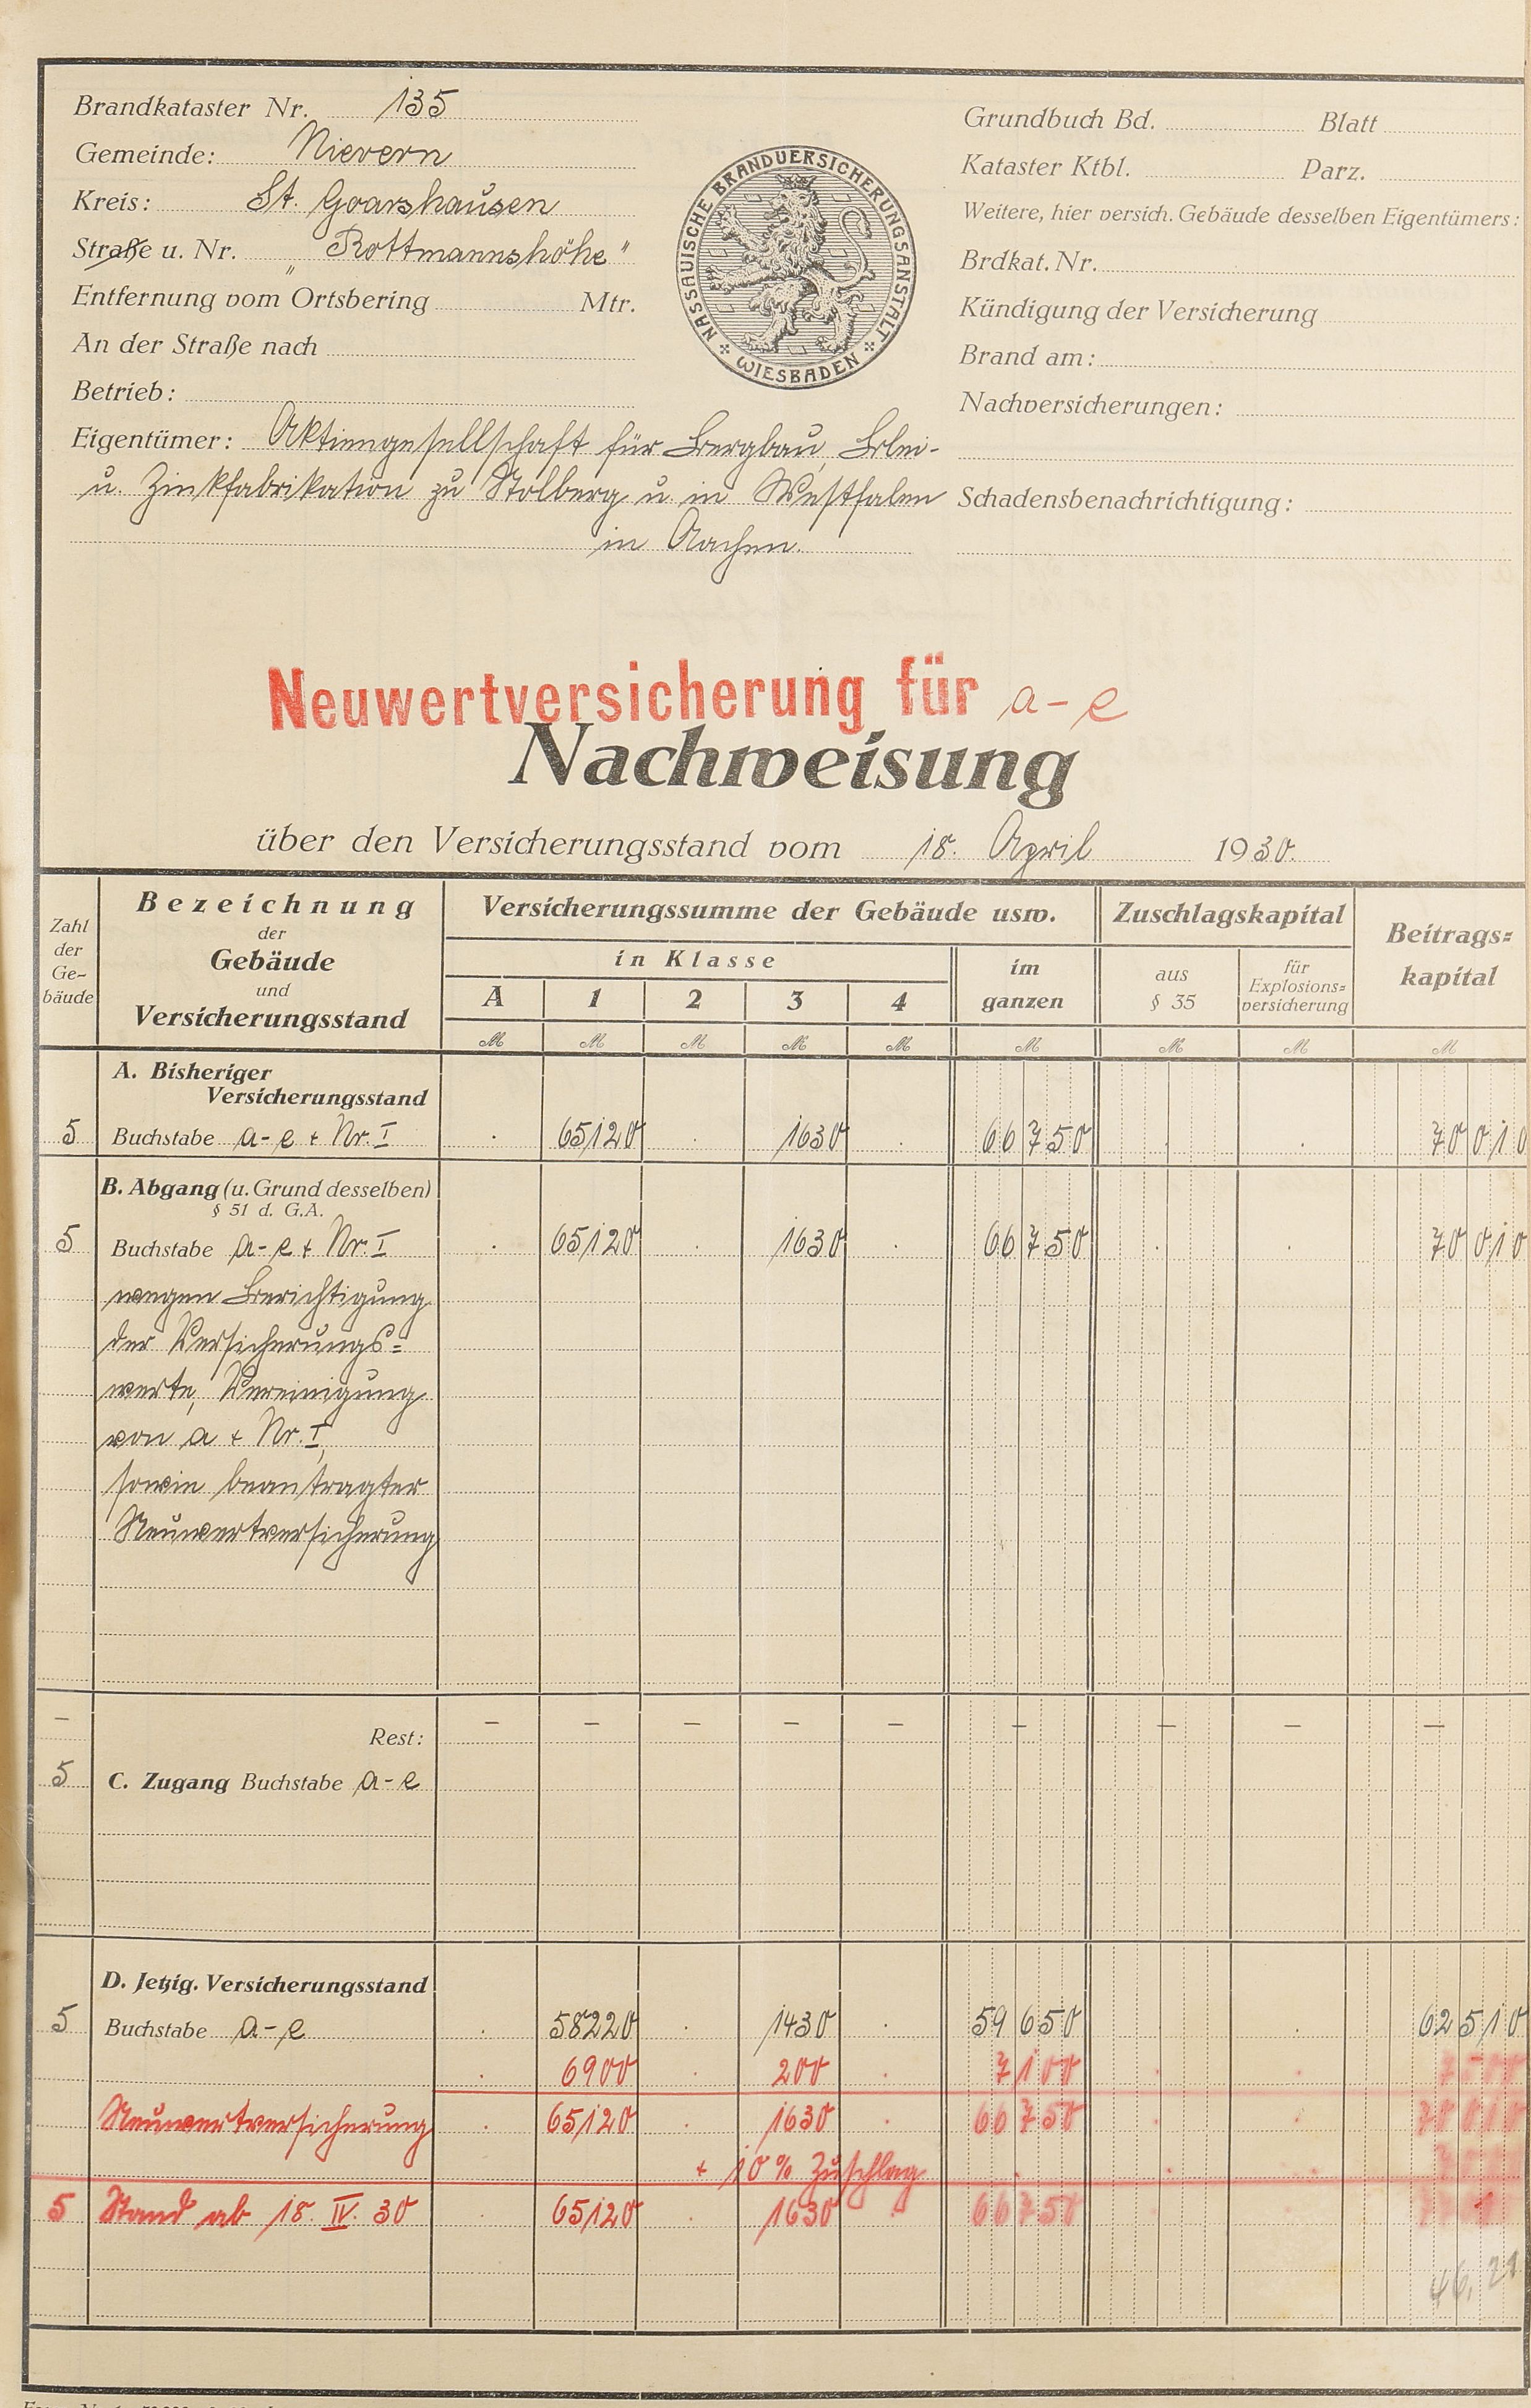 Brandkataster Nr. 135
Gemeinde: Nievern
Kreis: St. Goarshausen
Straße u. Nr. „Rottmannshöhe"
Entfernung vom Ortsbering Mtr.
An der Straße nach
Betrieb:
Eigentümer: Aktiengesellschaft für Bergbau, Blei-
u. Zinkfabrikation zu Stolberg u. in Westfalen
in Aachen.
NASSAUISCHE BRANDVERSICHERUNGSANSTALT
WIESBADEN
Grundbuch Bd. Blatt
Kataster Ktbl. Parz.
Weitere, hier versich. Gebäude desselben Eigentümers:
Brdkat. Nr.
Kündigung der Versicherung
Brand am:
Nachversicherungen:
Schadensbenachrichtigung:
Neuwertversicherung für a-e
Nachweisung
über den Versicherungsstand vom 18. April 1930.
Zahl der Ge-bäude
Bezeichnung
der
Gebäude
und
Versicherungsstand
Versicherungssumme der Gebäude usw.
in Klasse
A 1 2 3 4
im ganzen
Zuschlagskapital
aus § 35
für Explosions=versicherung
Beitrags=kapital
M M M M M M M M M
A. Bisheriger
Versicherungsstand
5 Buchstabe a-e + Nr. I . 65120 . 1630 . 66750 . . 70010
B. Abgang (u. Grund desselben)
§ 51 d. G.A.
5 Buchstabe a-e + Nr. I . 65120 . 1630 . 66750 . . 70010
wegen Berichtigung
der Versicherungs=
werte, Vereinigung
von a + Nr. I,
sowie beantragter
Neuwertversicherung
– Rest: – – – – – – – – –
5 C. Zugang Buchstabe a-e
D. Jetzig. Versicherungsstand
5 Buchstabe a-e . 58220 . 1430 . 59650 . . 62510
. 6900 . 200 . 7100 . . 7500
Neuwertversicherung . 65120 . 1630 . 66750 . . 70010
+ 10% Zuschlag
5 Stand ab 18. IV. 30 . 65120 . 1630 . 66750
46,21